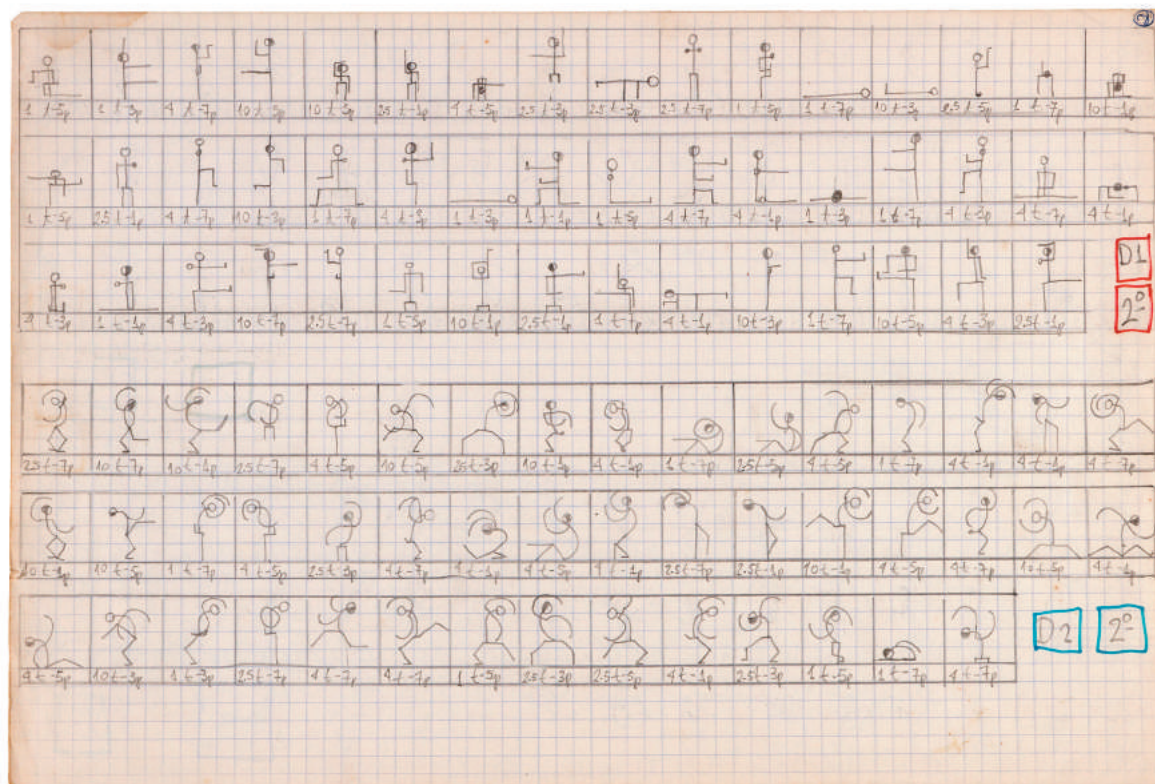 2
1 t-5p 1 t-3p 4 t-7p 10 t-5p 10 t-3p 25 t-1p 4 t-5p 2.5 t-3p 2.5 t-3p 2.5 t-7p 1 t-5p 1 t-7p 10 t-3p 2.5 t-5p 1 t-7p 10 t-1p
1 t-5p 2.5 t-1p 4 t-7p 10 t-3p 1 t-7p 4 t-3p 1 t-3p 1 t-1p 1 t-5p 4 t-7p 4 t-1p 1 t-3p 1 t-7p 4 t-3p 4 t-7p 4 t-1p
D1
4 t-3p 1 t-1p 4 t-3p 10 t-7p 2.5 t-7p 1 t-5p 10 t-1p 2.5 t-1p 1 t-7p 4 t-1p 10 t-3p 1 t-7p 10 t-5p 4 t-3p 2.5 t-1p
2º
25 t-7p 10 t-7p 10 t-1p 25 t-7p 4 t-5p 10 t-5p 25 t-3p 10 t-1p 4 t-1p 1 t-7p 25 t-5p 4 t-5p 1 t-7p 4 t-3p 4 t-1p 4 t-7p
10 t-1p 10 t-5p 1 t-7p 4 t-5p 25 t-3p 4 t-7p 1 t-1p 4 t-5p 4 t-1p 25 t-7p 2.5 t-1p 10 t-1p 4 t-5p 4 t-7p 10 t-5p 4 t-1p
D2 2º
4 t-5p 10 t-3p 1 t-3p 25 t-7p 4 t-7p 4 t-7p 1 t-5p 25 t-3p 2.5 t-5p 4 t-1p 25 t-3p 1 t-5p 1 t-7p 4 t-7p